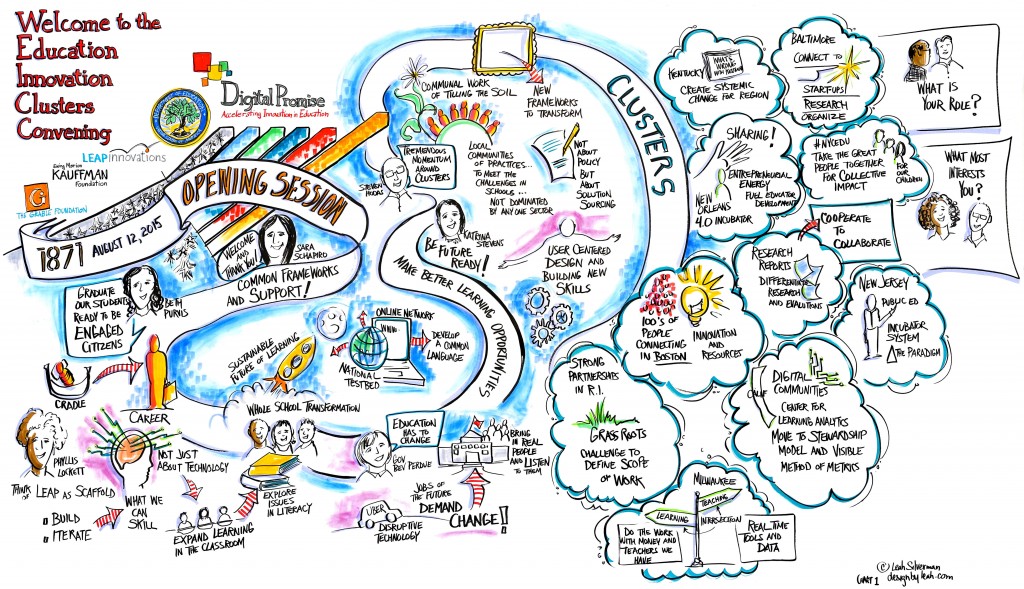 Welcome to the
Education
Innovation
Clusters
Convening
Digital Promise
Accelerating Innovation in Education
LEAP innovations
Ewing Marion
KAUFFMAN
Foundation
G
THE GRABLE FOUNDATION
1871
AUGUST 12, 2015
OPENING SESSION
WELCOME
AND
THANK YOU!
SARA
SCHAPIRO
COMMON FRAMEWORKS
AND SUPPORT!
GRADUATE
OUR STUDENTS
READY TO BE
ENGAGED
CITIZENS
BETH
PURVIS
CRADLE
CAREER
PHYLLIS
LOCKETT
THINK LEAP AS SCAFFOLD
BUILD
ITERATE
WHAT WE
CAN
SKILL
NOT JUST
ABOUT TECHNOLOGY
EXPAND LEARNING
IN THE CLASSROOM
EXPLORE
ISSUES
IN LITERACY
WHOLE SCHOOL TRANSFORMATION
SUSTAINABLE
FUTURE OF LEARNING
ONLINE NETWORK
WWW
NATIONAL
TESTBED
DEVELOP A
COMMON
LANGUAGE
EDUCATION
HAS TO
CHANGE
GOV
BEV PERDUE
UBER
DISRUPTIVE
TECHNOLOGY
JOBS OF
THE FUTURE
DEMAND
CHANGE!!
BRING
IN REAL
PEOPLE
AND LISTEN
TO THEM
COMMUNAL WORK
OF TILLING THE SOIL
NEW
FRAMEWORKS
TO TRANSFORM
TREMENDOUS
MOMENTUM
AROUND
CLUSTERS
STEVEN
HODAS
LOCAL
COMMUNITIES
OF PRACTICES...
TO MEET THE
CHALLENGES IN
SCHOOLS...
NOT DOMINATED
BY ANY ONE SECTOR
NOT
ABOUT
POLICY
BUT
ABOUT
SOLUTION
SOURCING
KATRINA
STEVENS
BE
FUTURE
READY!
MAKE BETTER LEARNING OPPORTUNITIES
USER CENTERED
DESIGN AND
BUILDING NEW
SKILLS
CLUSTERS
KENTUCKY
WHAT'S
WRONG
WITH
CREATE SYSTEMIC
CHANGE FOR REGION
BALTIMORE
CONNECT TO
STARTUPS
RESEARCH
ORGANIZE
WHAT IS
YOUR ROLE?
SHARING!
ENTREPRENEURIAL
ENERGY
FUEL EDUCATOR
DEVELOPMENT
NEW
ORLEANS
4.0 INCUBATOR
#NYCEDU
TAKE THE GREAT
PEOPLE TOGETHER
FOR COLLECTIVE
IMPACT
FOR OUR
CHILDREN
WHAT MOST
INTERESTS
YOU?
COOPERATE
TO
COLLABORATE
RESEARCH
REPORTS
DIFFERENTIATE
RESEARCH
AND EVALUTIONS
100'S OF
PEOPLE
CONNECTING
IN BOSTON
INNOVATION
AND
RESOURCES
NEW JERSEY
PUBLIC ED
INCUBATOR
SYSTEM
Δ THE PARADIGM
STRONG
PARTNERSHIPS
IN R.I.
GRASS ROOTS
CHALLENGE TO
DEFINE SCOPE
OF WORK
CALIF
DIGITAL
COMMUNITIES
CENTER FOR
LEARNING ANALYTICS
MOVE TO STEWARDSHIP
MODEL AND VISIBLE
METHOD OF METRICS
MILWAUKEE
TEACHING
LEARNING
INTERSECTION
DO THE WORK
WITH MONEY AND
TEACHERS WE
HAVE
REAL TIME
TOOLS AND
DATA
© Leah Silverman
designbyleah.com
CHART 1